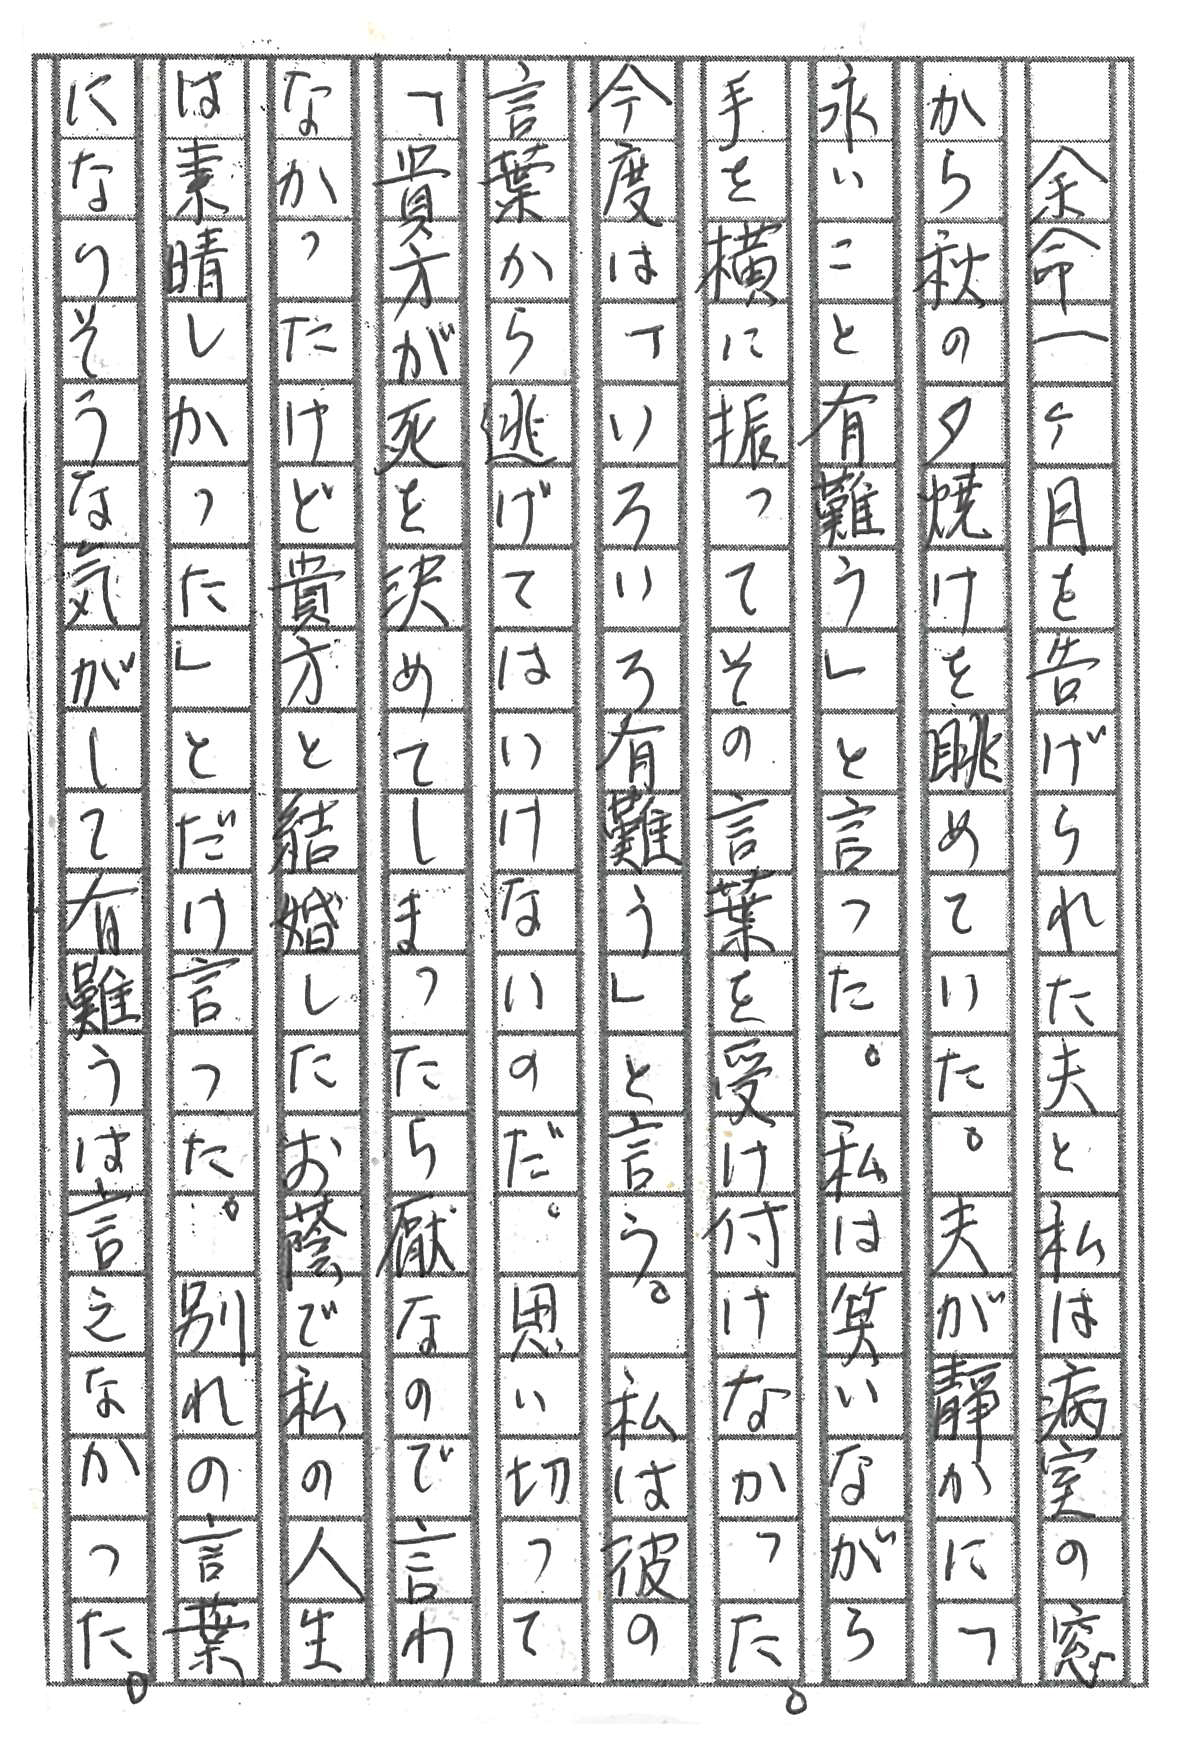 余命一ヶ月を告げられた夫と私は病室の窓
から秋の夕焼けを眺めていた。夫が静かに「
永いこと有難う」と言った。私は笑いながら
手を横に振ってその言葉を受け付けなかった。
今度は「いろいろ有難う」と言う。私は彼の
言葉から逃げてはいけないのだ。思い切って
「貴方が死を決めてしまったら厭なので言わ
なかったけど貴方と結婚したお蔭で私の人生
は素晴しかった」とだけ言った。別れの言葉
になりそうな気がして有難うは言えなかった。